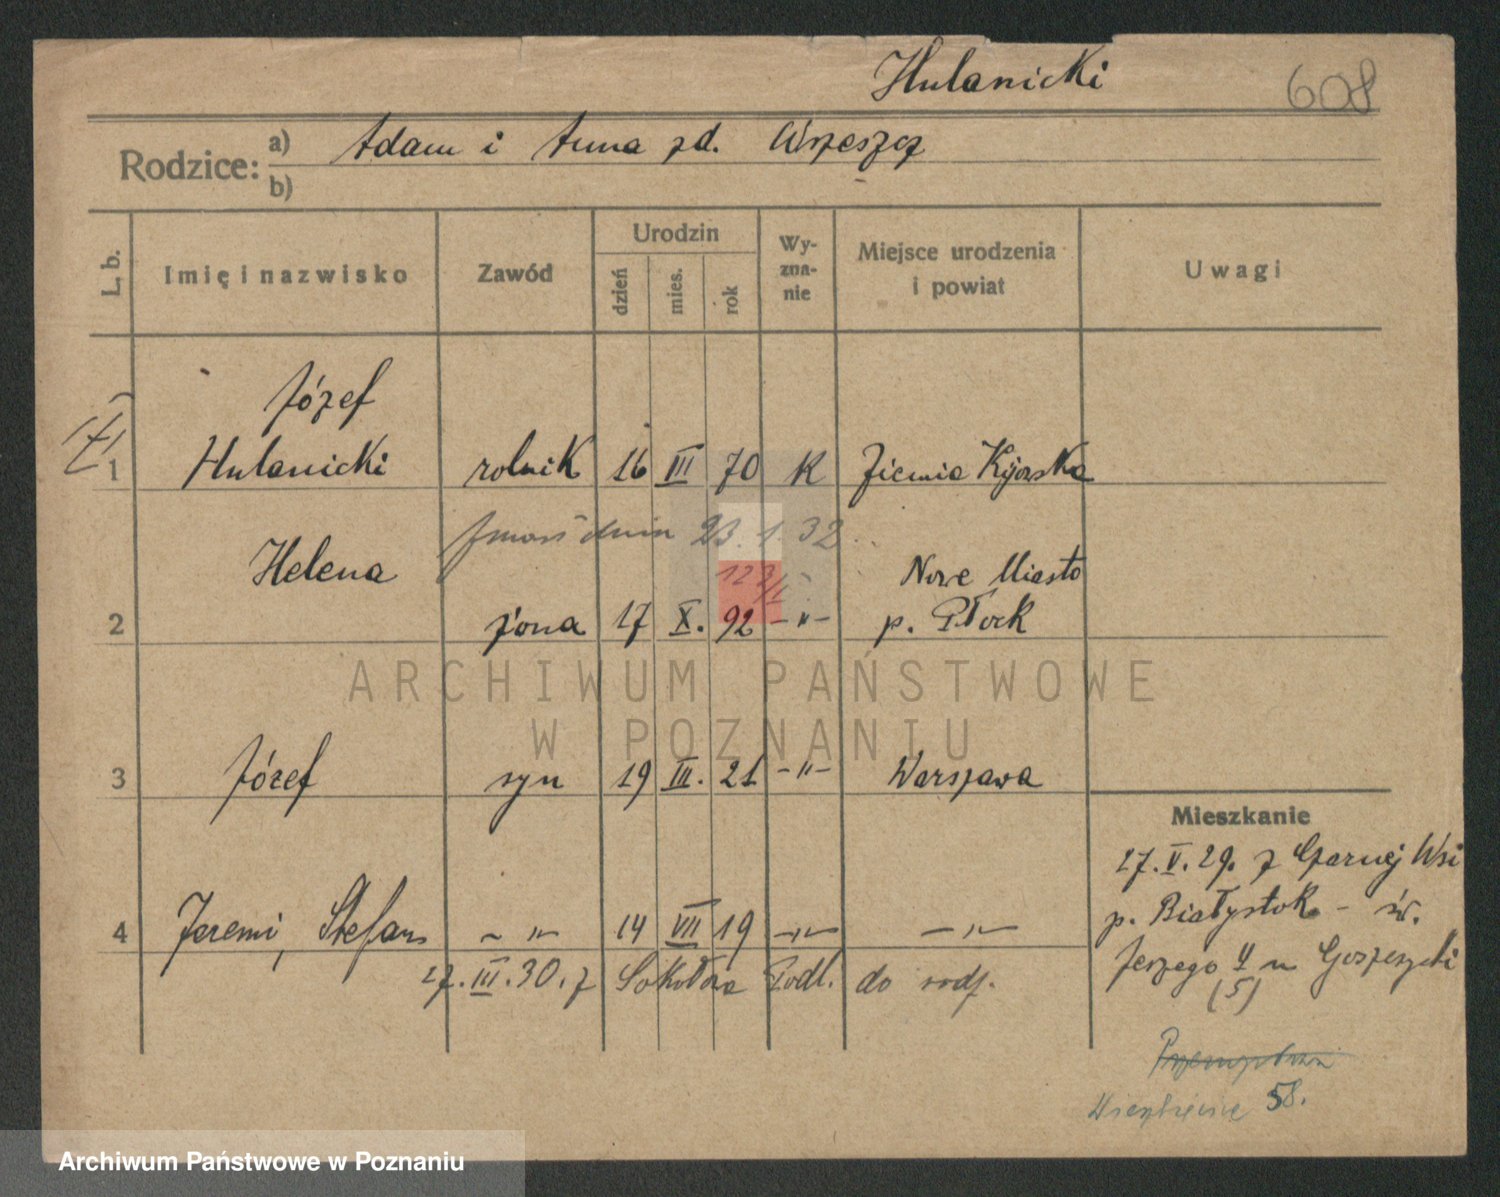 Hulanicki
608
Rodzice: a) Adam i Anna zd. Wrzeszcz
b)
L. b. Imię i nazwisko Zawód Urodzin dzień mies. rok Wy-zna-nie Miejsce urodzenia i powiat Uwagi
Józef
1 Hulanicki rolnik 16 III 70 K Ziemia Kijowska
Zmarł dnia 23.1.32
Helena Nowe Miasto
2 żona 17 X. 92 -"- p. Płock
3 Józef syn 19 III. 21 -"- Warszawa
4 Jeremi, Stefan -"- 14 VII 19 -"- -"-
27.III.30. z Sokółka Podl. do rodz.
Mieszkanie
27.V.29. z Czarnej Wsi
p. Białystok - św.
Jerzego 4 u
(5)
58.
ARCHIWUM PAŃSTWOWE
W POZNANIU
Archiwum Państwowe w Poznaniu